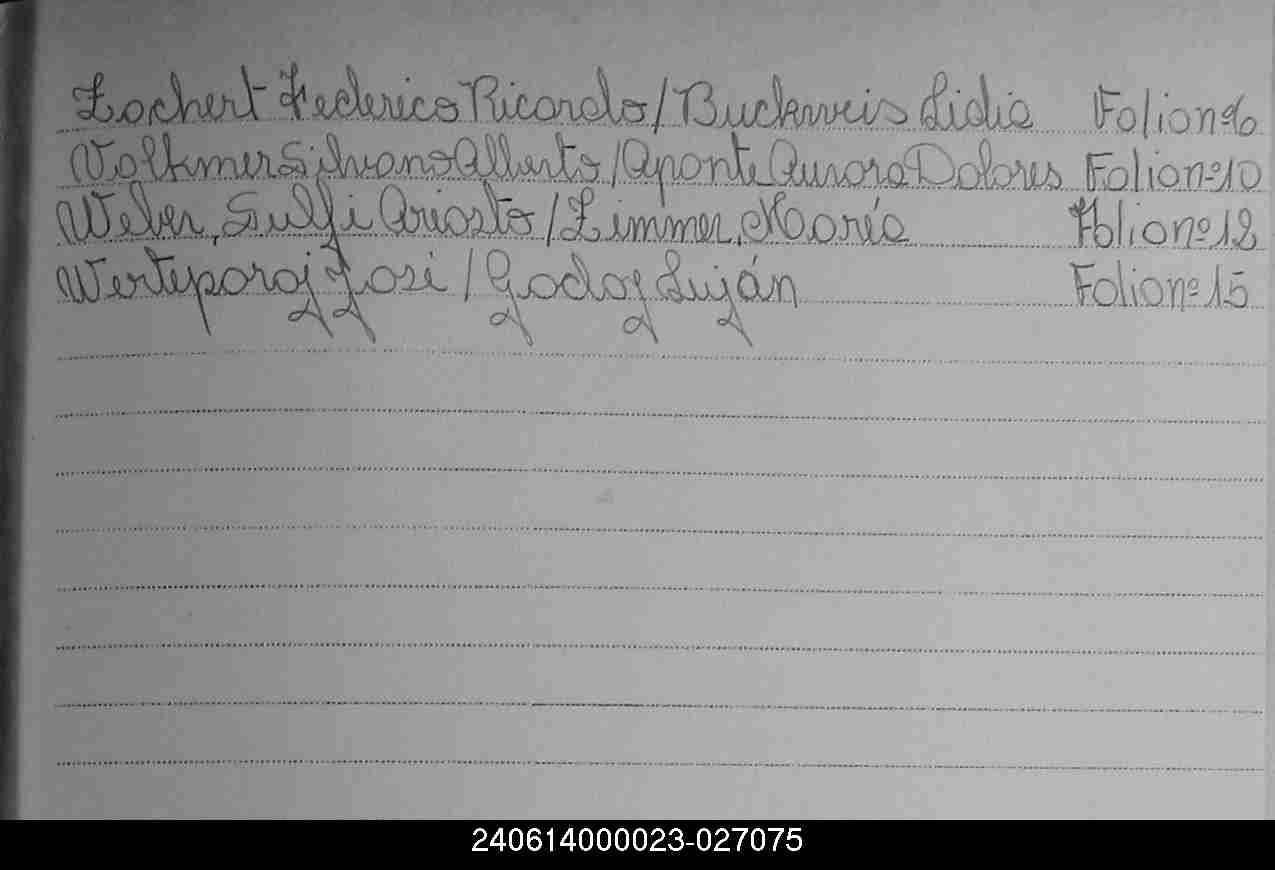 Zochert Federico Ricardo/Buckweis Lidia Folio nº 6
Volkmer Silvano Alberto/Aponte Aurora Dolores Folio nº 10
Weber, Sulfi Ariosto/Zimmer, María Folio nº 12
Werteporoj José/Godoy Luján Folio nº 15
240614000023-027075